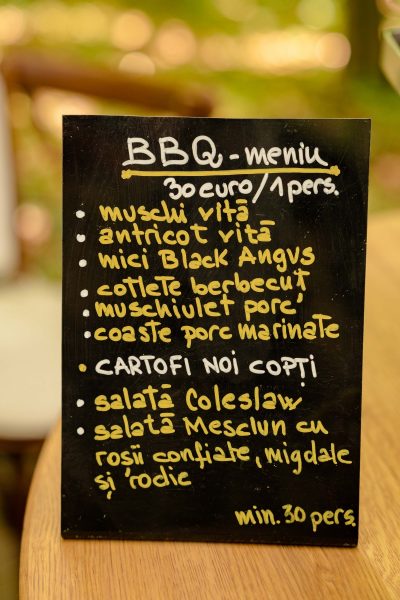 BBQ - meniu
30 euro / 1 pers.
• muschi vită
• antricot vită
• mici Black Angus
• cotlete berbecuț
• muschiuleț porc
• coaste porc marinate
• CARTOFI NOI COPȚI
• salată Coleslaw
• salată Mesclun cu
roșii confiate, migdale
și rodie
min. 30 pers.